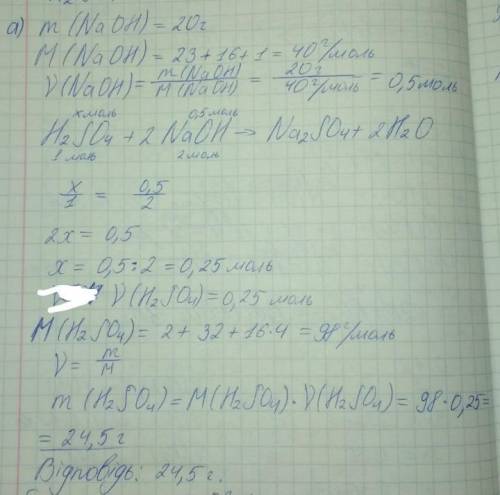 а) m (NaOH) = 20г
M (NaOH) = 23 + 16 + 1 = 40 г/моль
ν(NaOH) = m(NaOH)/M(NaOH) = 20г/40 г/моль = 0,5 моль
x моль 0,5 моль
H₂SO₄ + 2 NaOH → Na₂SO₄ + 2H₂O
1 моль 2 моль
x/1 = 0,5/2
2x = 0,5
x = 0,5 : 2 = 0,25 моль
ν(H₂SO₄) = 0,25 моль
M(H₂SO₄) = 2 + 32 + 16·4 = 98 г/моль
ν = m/M
m (H₂SO₄) = M(H₂SO₄)·ν(H₂SO₄) = 98·0,25=
= 24,5 г
Відповідь: 24,5 г.